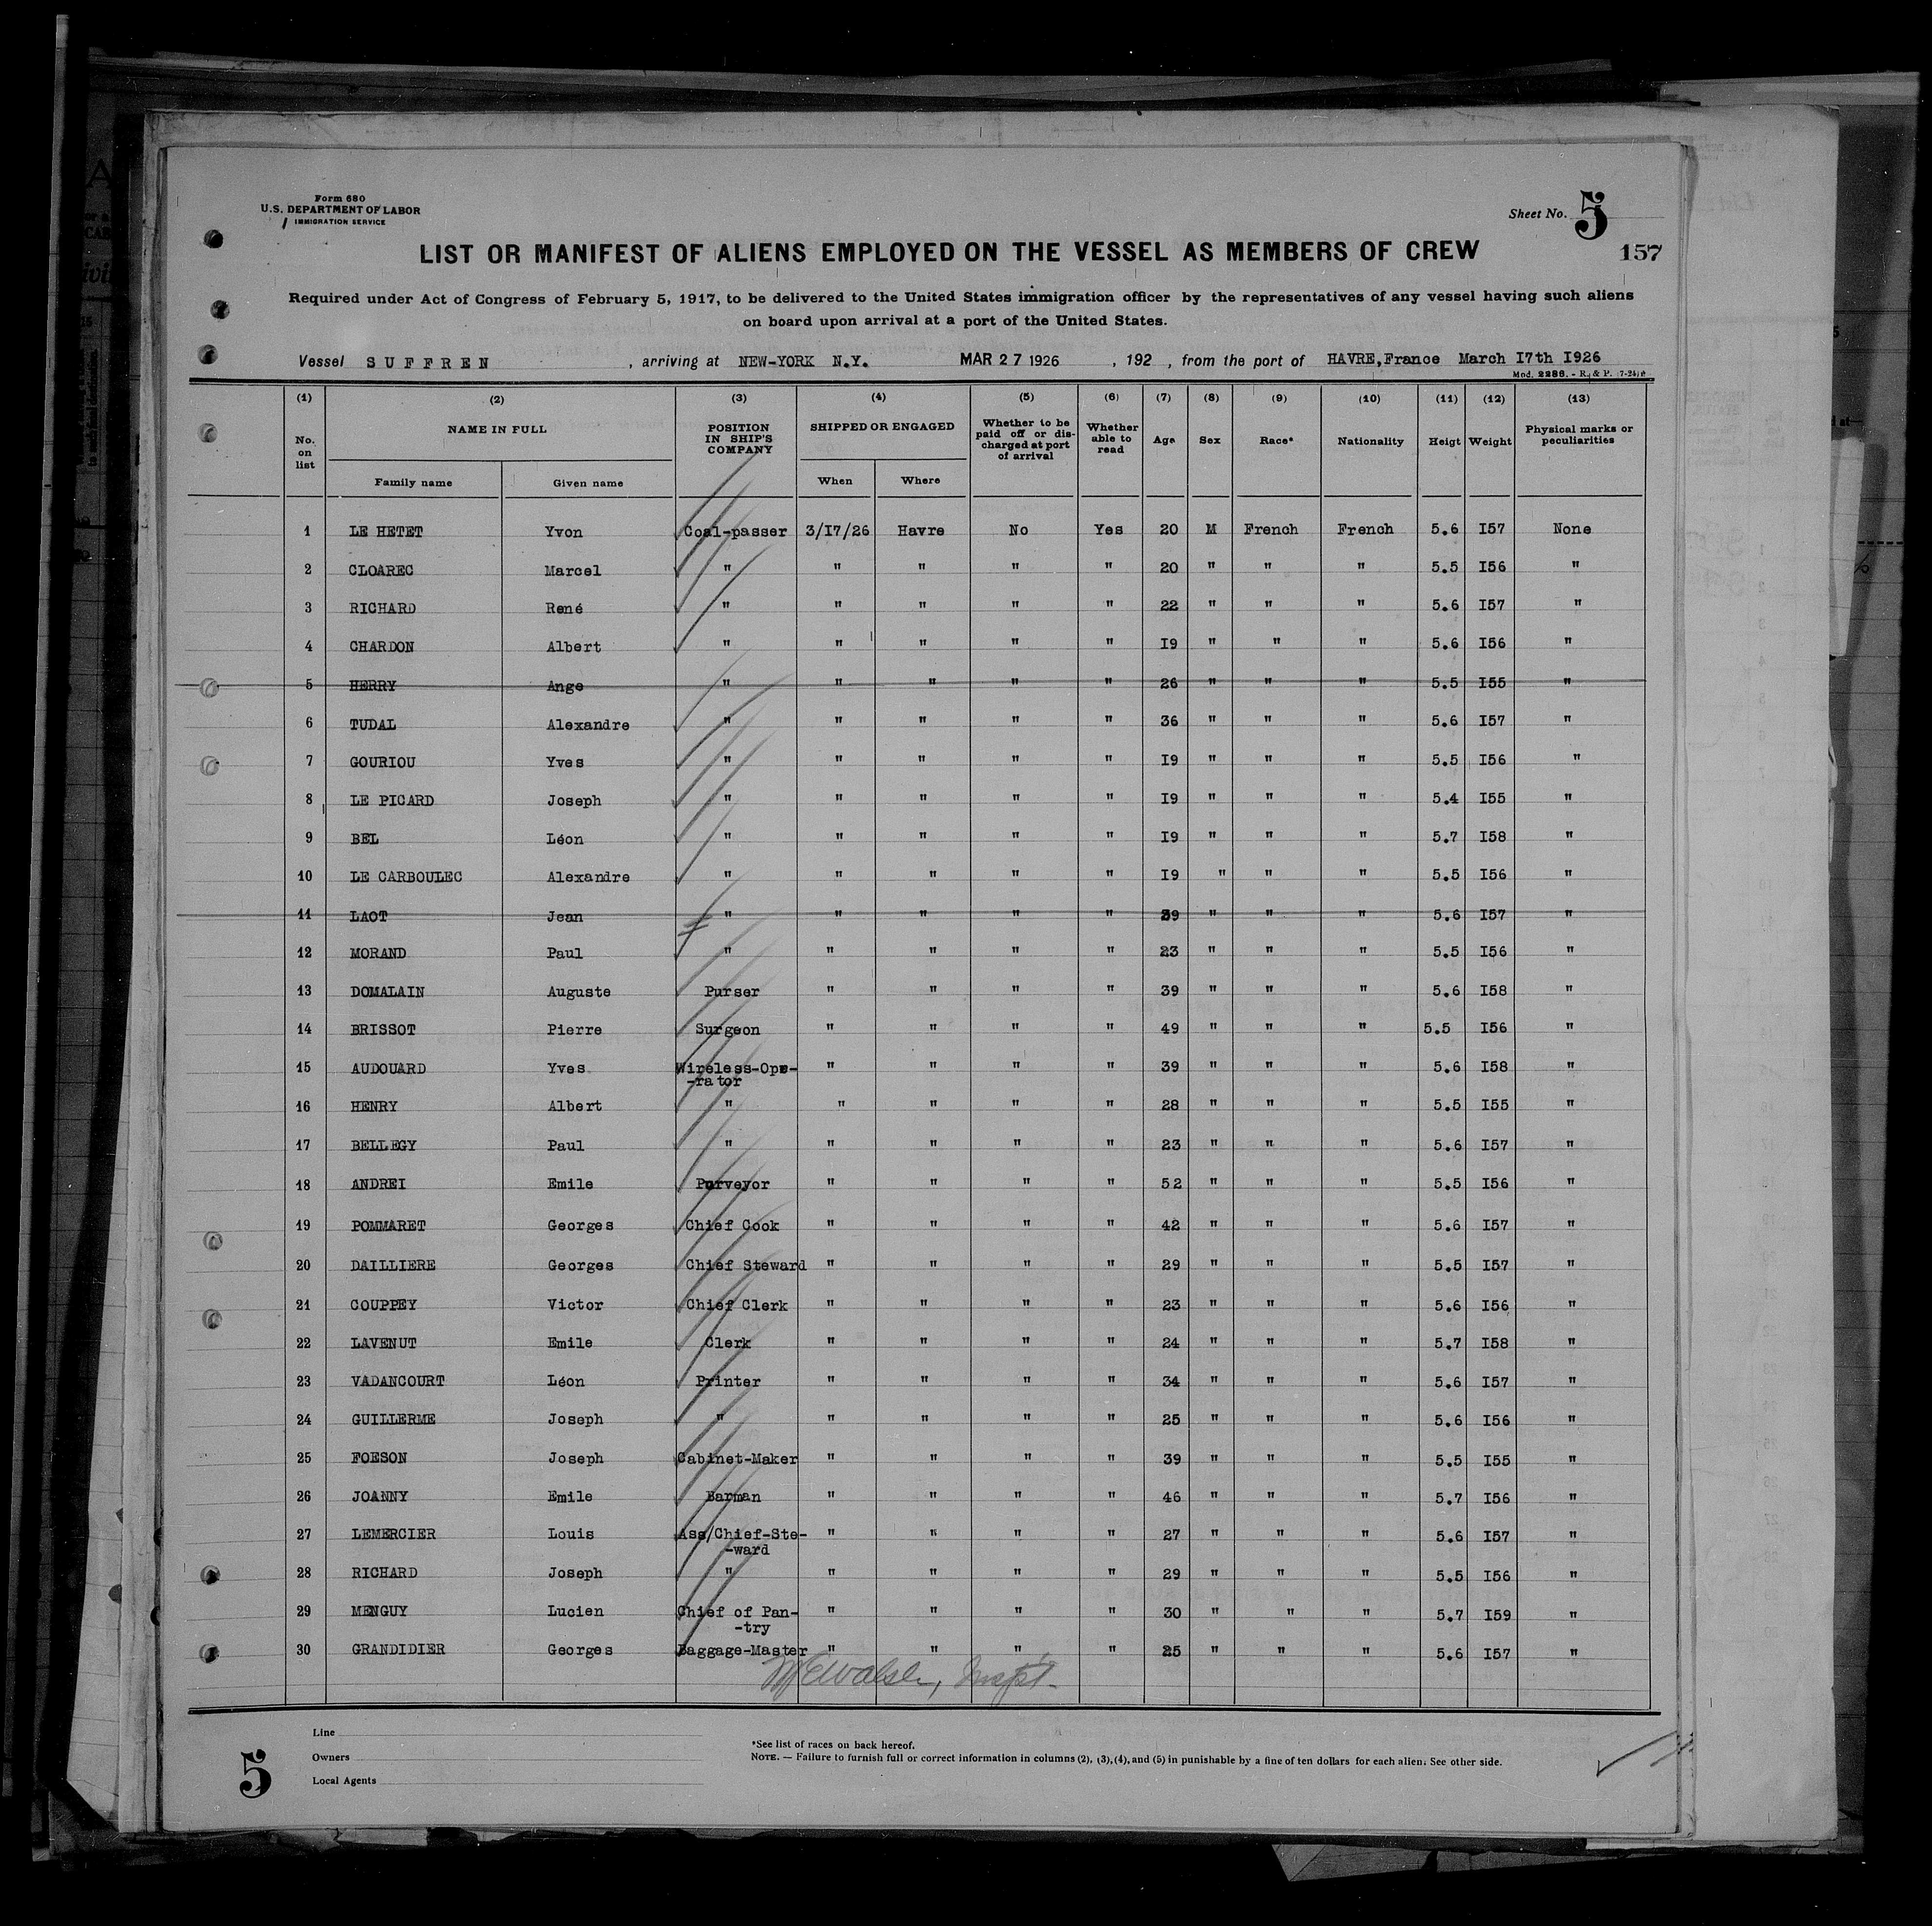 Form 680
U.S. DEPARTMENT OF LABOR
IMMIGRATION SERVICE
Sheet No. 5
157
LIST OR MANIFEST OF ALIENS EMPLOYED ON THE VESSEL AS MEMBERS OF CREW
Required under Act of Congress of February 5, 1917, to be delivered to the United States immigration officer by the representatives of any vessel having such aliens
on board upon arrival at a port of the United States.
Vessel SUFFREN , arriving at NEW-YORK N.Y. MAR 27 1926 , 192 , from the port of HAVRE,France March I7th I926
Mod. 2286. - R. & P. (7-24)
(1) (2) (3) (4) (5) (6) (7) (8) (9) (10) (11) (12) (13)
No. on list NAME IN FULL Family name Given name POSITION IN SHIP'S COMPANY SHIPPED OR ENGAGED When Where Whether to be paid off or discharged at port of arrival Whether able to read Age Sex Race* Nationality Heigt Weight Physical marks or peculiarities
1 LE HETET Yvon Coal-passer 3/I7/26 Havre No Yes 20 M French French 5.6 I57 None
2 CLOAREC Marcel " " " " " 20 " " " 5.5 I56 "
3 RICHARD René " " " " " 22 " " " 5.6 I57 "
4 CHARDON Albert " " " " " I9 " " " 5.6 I56 "
5 HERRY Ange " " " " " 26 " " " 5.5 I55 "
6 TUDAL Alexandre " " " " " 36 " " " 5.6 I57 "
7 GOURIOU Yves " " " " " I9 " " " 5.5 I56 "
8 LE PICARD Joseph " " " " " I9 " " " 5.4 I55 "
9 BEL Léon " " " " " I9 " " " 5.7 I58 "
10 LE CARBOULEC Alexandre " " " " " I9 " " " 5.5 I56 "
11 LAOT Jean " " " " " " " " 5.6 I57 "
12 MORAND Paul " " " " " 23 " " " 5.5 I56 "
13 DOMALAIN Auguste Purser " " " " 39 " " " 5.6 I58 "
14 BRISSOT Pierre Surgeon " " " " 49 " " " 5.5 I56 "
15 AUDOUARD Yves Wireless-Ope- -rator " " " " 39 " " " 5.6 I58 "
16 HENRY Albert " " " " " 28 " " " 5.5 I55 "
17 BELLEGY Paul " " " " " 23 " " " 5.6 I57 "
18 ANDREI Emile Purveyor " " " " 52 " " " 5.5 I56 "
19 POMMARET Georges Chief Cook " " " " 42 " " " 5.6 I57 "
20 DAILLIERE Georges Chief Steward " " " " 29 " " " 5.5 I57 "
21 COUPPEY Victor Chief Clerk " " " " 23 " " " 5.6 I56 "
22 LAVENUT Emile Clerk " " " " 24 " " " 5.7 I58 "
23 VADANCOURT Léon Printer " " " " 34 " " " 5.6 I57 "
24 GUILLERME Joseph " " " " " 25 " " " 5.6 I56 "
25 FOESON Joseph Cabinet-Maker " " " " 39 " " " 5.5 I55 "
26 JOANNY Emile Barman " " " " 46 " " " 5.7 I56 "
27 LEMERCIER Louis Ass/Chief-Ste- -ward " " " " 27 " " " 5.6 I57 "
28 RICHARD Joseph " " " " " 29 " " " 5.5 I56 "
29 MENGUY Lucien Chief of Pan- -try " " " " 30 " " " 5.7 I59 "
30 GRANDIDIER Georges Baggage-Master " " " " 25 " " " 5.6 I57 "
Line
Owners
Local Agents
5
*See list of races on back hereof.
NOTE. — Failure to furnish full or correct information in columns (2), (3), (4), and (5) in punishable by a fine of ten dollars for each alien. See other side.